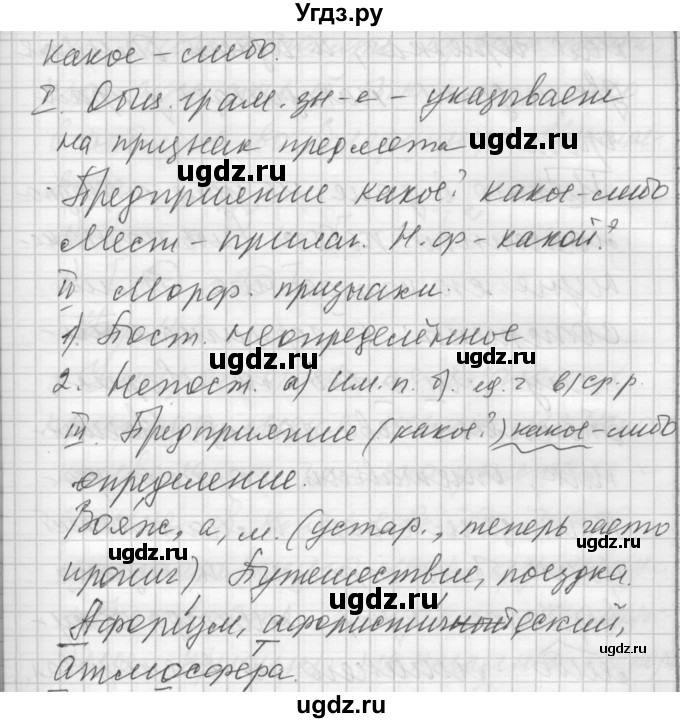 Угдз.ру
какое-либо.
I. Общ. грам. зн-е - указывает
на признак предмета
ugdz.ru ugdz.ru
Предприятие какое? какое-либо
Мест - прилаг. Н.ф - какой?
II Морф. признаки.
1) Пост. неопределённое
ugdz.ru ugdz.ru
2. Непост. а) Им. п. б). ед. ч в) ср. р.
III. Предприятие (какое?) какое-либо
ugdz.ru
определение.
Вояж, а, м. (устар., теперь часто
ugdz.ru ugdz.ru
иронич) Путешествие, поездка.
ugdz.ru
Афоризм, афористический,
Атмосфера.
ugdz.ru